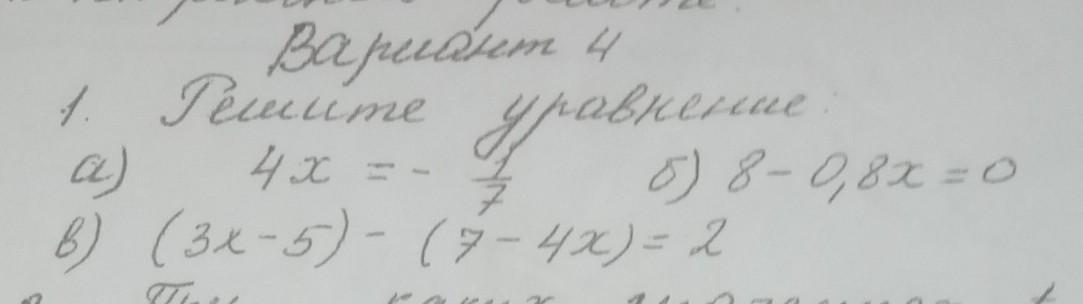 Вариант 4
1. Решите уравнение:
а) 4x = - 1/7 б) 8 - 0,8x = 0
в) (3x - 5) - (7 - 4x) = 2